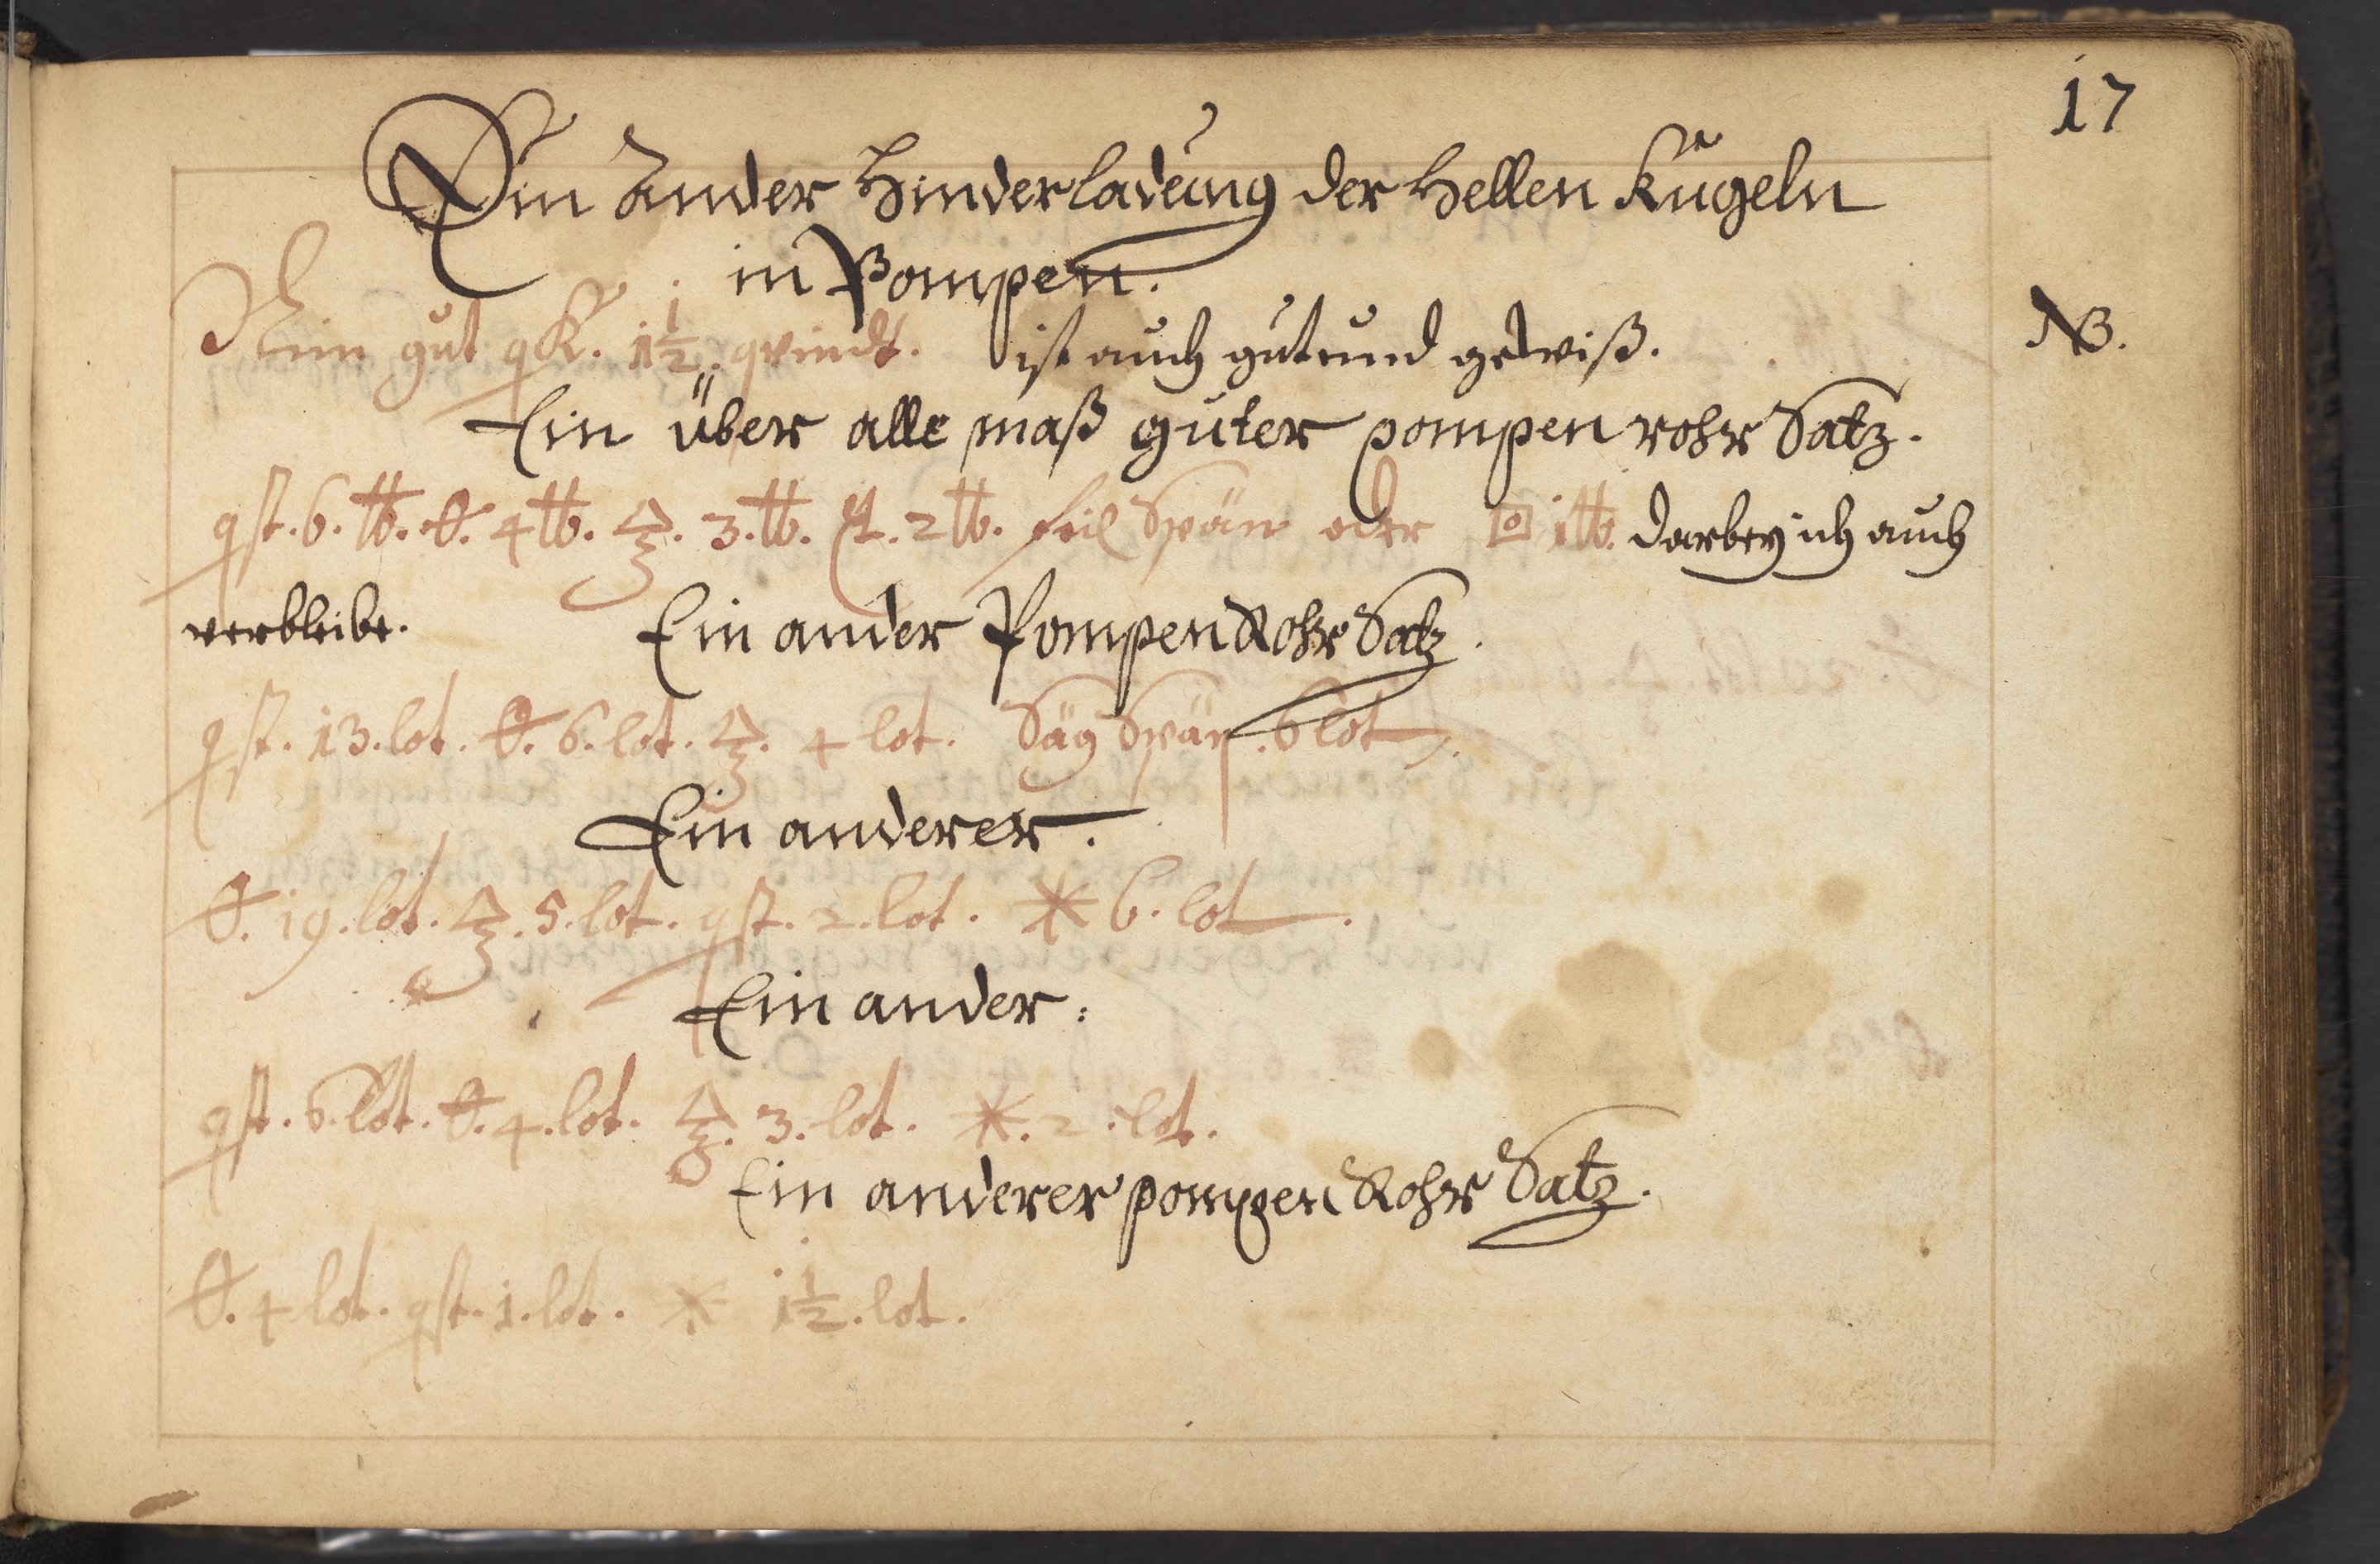 17
Ein Ander Hinderladung der Hellen Kugeln
in Pompen.
Nim gut q K. 1 1/2. quindt. ist auch gut und gewiß. NB.
Ein über alle maß guter pompen rohr Satz.
qst. 6. ℔. 4 ℔. 3. ℔. 2 ℔. feil Spän oder 1 ℔. darbey ich auch
verbleibe. Ein ander Pompen Rohr Satz.
qst. 13. lot. 6. lot. 4 lot. Säg Spän. 6 lot.
Ein anderer.
19. lot. 5. lot. qst. 2. lot. * 6. lot.
Ein ander:
qst. 6. lot. 4. lot. 3. lot. *. 2. lot.
Ein anderer pompen Rohr Satz.
4 lot. qst. 1. lot. * 1 1/2. lot.